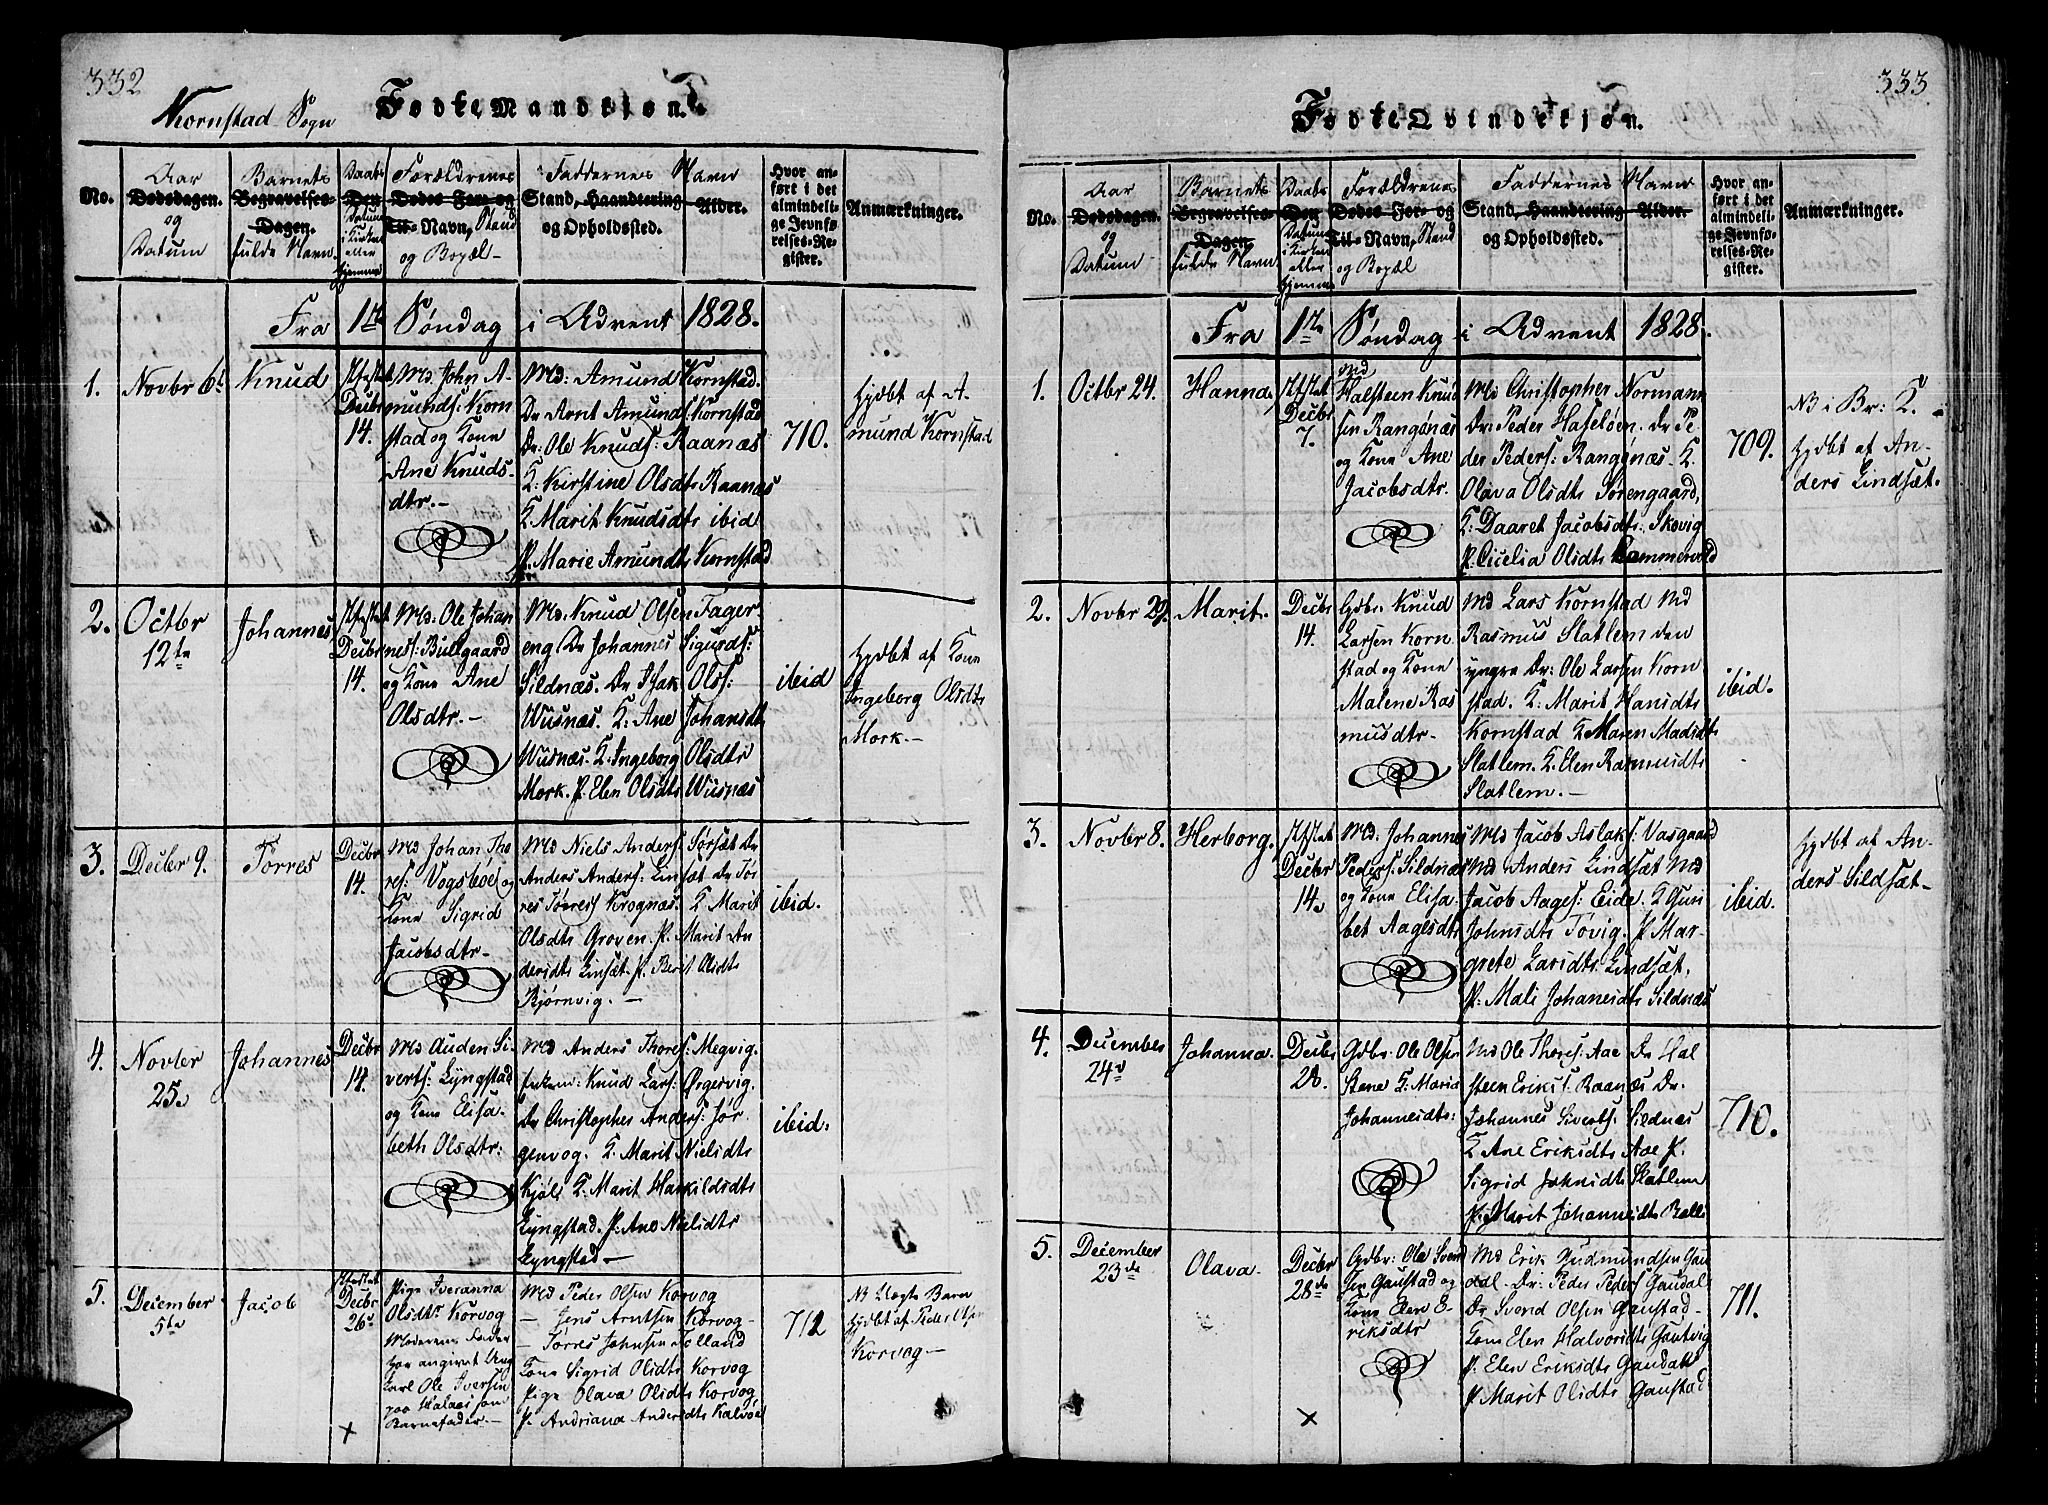 332
Kornstad Sogn
Fødte Mandkiøn.
No.
Aar
Dødsdagen.
og
Datum
Barnets
Begravelses-
Dagen.
fulde Navn
Daabs
Den
Datum
i Kirken
eller
hjemme
Forældrenes
Dødes For- og
Til-Navn, Stand
og Bopæl
Faddernes Navn
Stand, Haandtering Alder.
og Opholdssted.
Hvor an-
ført i det
almindeli-
ge Jevnfø-
relses-Re-
gister.
Anmærkninger.
Fra 1ste Søndag i Advent 1828.
1.
Novbr 6te
Knud
Stfstet
Decbr
14.
Md. John A-
munds: Korn
stad og Kone
Ane Knuds-
dtr.-
Md: Amund Kornstad.
Dr Arnt Amunds: Kornstad
Dr: Ole Knuds: Raanæs
K. Kirstine Olsdtr Raanæs
K. Marit Knudsdtr ibid
P. Marie Amundtr Kornstad
710.
hjdbt af A
mund Kornstad
2.
Octbr
12te
Johannes
Stfstet
Decbr
14.
Md. Ole Johan
nes: Bullgaard
og Kone Ane
Olsdtr.-
Md. Knud Olsen Fager
eng Dr Johannes Sigurds:
Sildnæs. Dr Isak Ols:
Wusnæs. K: Ane Johansdtr
Wusnæs. K. Ingeborg Olsdtr
Mork. P. Elen Olsdtr Wusnæs
ibid
hjdbt af Kone
Ingeborg Olsdtr
Mork.-
3.
Decber 9.
Torres
Decbr
14.
Md Johan Tho
res: Vogsbøe og
Kone Sigrid
Jacobsdtr-
Md Niels Anders: Sørsæt Dr
Anders Anders: Linsæt Dr Tor
res Torress Krognæs. K Marit
Olsdtr Groven P. Marit An
dersdtr Linsæt. P. Berit Olsdtr
Bjørnvig.-
ibid.
4.
Novber
25.
Johannes
Decbr
14.
Md Auden Si
verts: Lyngstad
og Kone Elisa
beth Olsdtr:
Md Anders Thores: Megvig.
Knud Lars: Ørgervig.
Dr Christopher Anders: Jør
genvog. K. Marit Nielsdtr
Kjøls K. Marit Harkildsdtr
Lyngstad. P: Ane Nielsdtr
Lyngstad-
ibid.
5.
December
5te
Jacob
Stfstet
Decbr
26.
Pige Iveranna
Olsdtr Korvog
Moderen
har angivet Ung
karl Ole Iversen
paa som
Barnefader-
Md Peder Olsen Korvog
- Jens Arntsen Korvog-
- Torres Johnsen Tolland
Kone Sigrid Olsdtr Korvog
Pige Olava Olsdtr Korvog
P. Andriana Andersdtr Kalvøe
712
NB Uægte Barn
hjdbt af Peder Olsen
Korvog-
333
Fødte Qvindekiøn.
No.
Aar
Dødsdagen.
og
Datum
Barnets
Begravelses-
Dagen
fulde Navn
Daabs
Den
Datum
i Kirken
eller
hjemme
Forældrenes
Dødes For- og
Til-Navn, Stand
og Bopæl
Faddernes Navn
Stand, Haandtering Alder.
og Opholdssted.
Hvor an-
ført i det
almindeli-
ge Jevnfø-
relses-Re-
gister.
Anmærkninger.
Fra 1ste Søndag i Advent 1828.
1.
Octbr 24.
Hanna
Stfstet
Decbr
7.
Md
Halsteen Knud
sen Rangønæs
og Kone Ane
Jacobsdtr.
Md Christopher Normann
Dr: Peder Haseløen. Dr Pe
der Peders: Rangønæs. K.
Olava Olsdtr Sørengaard,
K: Daaret Jacobsdtr: Skovig
P. Cicelia Olsdtr Kammervold
709.
NB i Br: K.
hjdbt af An-
ders Lindsæt.
2.
Novbr 29.
Marit.
Decbr
14.
Gdbr. Knud
Larsen Korn
stad og Kone
Malene Ras
musdtr-
Md Lars Kornstad Md
Rasmus Slatlem den
yngre Dr: Ole Larsen Korn
stad. K. Marit Hansdtr
Kornstad K Maren Madsdtr
Slatlem. K. Elen Rasmusdtr
Slatlem.-
ibid.
3.
Novbr 8.
Herborg.
Stfstet
Decbr
14.
Md: Johannes
Peders: Sildnæs
og Kone Elisa
bet Aagesdtr
Md Jacob Aslaks: Vasgaard
Md Anders Lindsæt Md
Jacob Aages: Eide. K Guri
Johnsdtr Tøvig. P Mar-
grete Larsdtr Lindsæt.
P. Mali Johannesdtr Sildnæs
ibid.
hjdbt af An-
ders Sildsæt-
4.
December
24de
Johanna.
Decbr
28.
Gdbr: Ole Olsen
Stene K. Maria
Johannesdtr:
Md Ole Thores: Aae Dr Hal
steen Eriks: Raanæs Dr.
Johannes Siverts. Sildnæs
K Ane Eriksdtr Aae P.
Sigrid Johnsdtr Slatlem
P. Marit Johannesdtr Belli
710.
5.
December
23de
Olava-
Decbr
28de
Gdbr: Ole Svend
sen Gaustad og
Kone Elen E-
riksdtr
Md Erik Gudmundsen Gau
dal- Dr: Peder Peders Gaudal
Dr Svend Olsen Gaustad-
Kone Elen Halvorsdtr Gautvig
P. Elen Eriksdtr Gaudahl
P. Marit Olsdtr Gaustad
711.